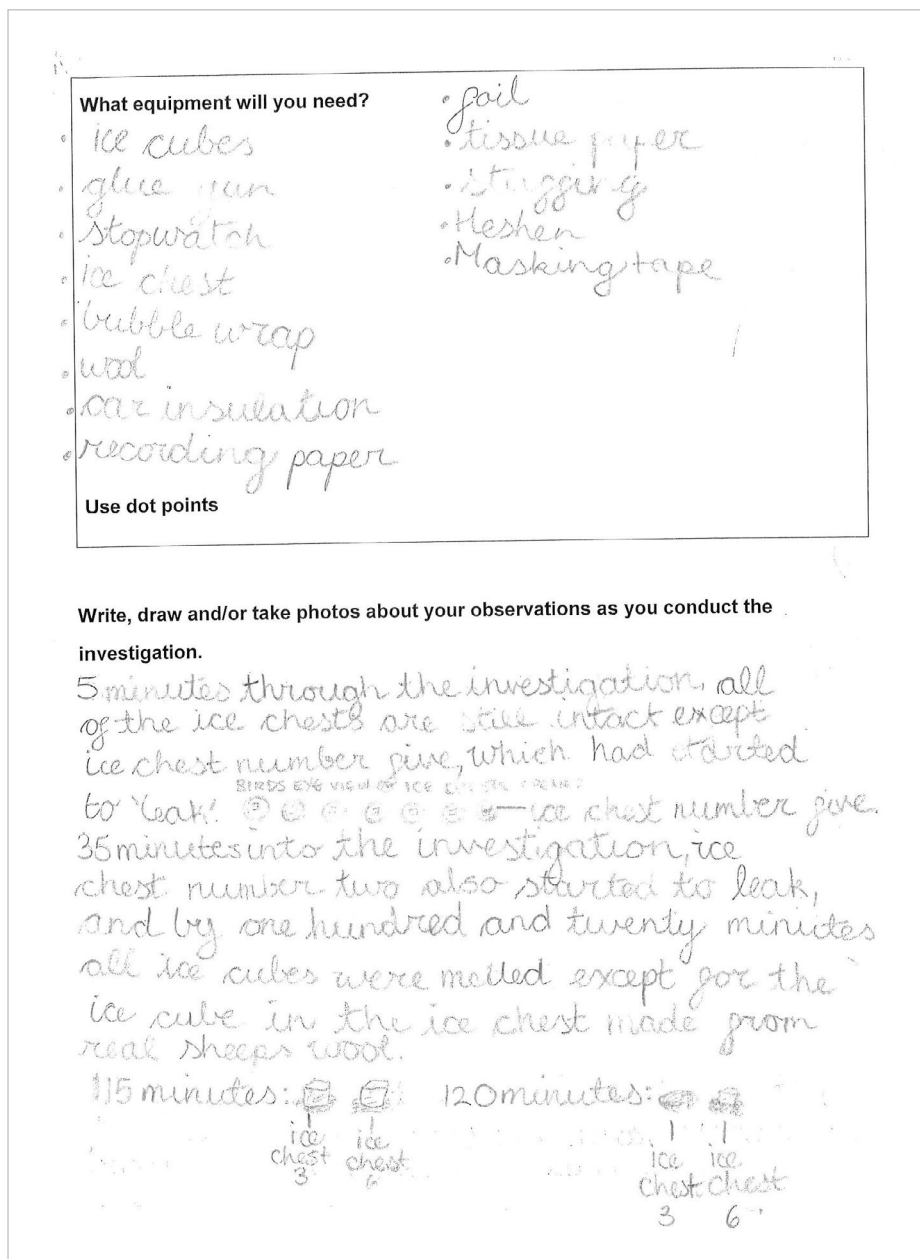 What equipment will you need?
• ice cubes
• glue gun
• stopwatch
• ice chest
• bubble wrap
• wool
• car insulation
• recording paper
• foil
• tissue paper
• stugging
• Heshen
• Masking tape
Use dot points
Write, draw and/or take photos about your observations as you conduct the
investigation.
5 minutes through the investigation, all
of the ice chests are still intact except
ice chest number five, which had started
BIRDS EYE VIEW OF ICE
to 'leak'. — ice chest number five.
35 minutes into the investigation, ice
chest number two also started to leak,
and by one hundred and twenty minutes
all ice cubes were melled except for the
ice cube in the ice chest made from
real sheeps wool.
115 minutes: 120 minutes:
ice ice ice ice
chest chest chest chest
3 6 3 6